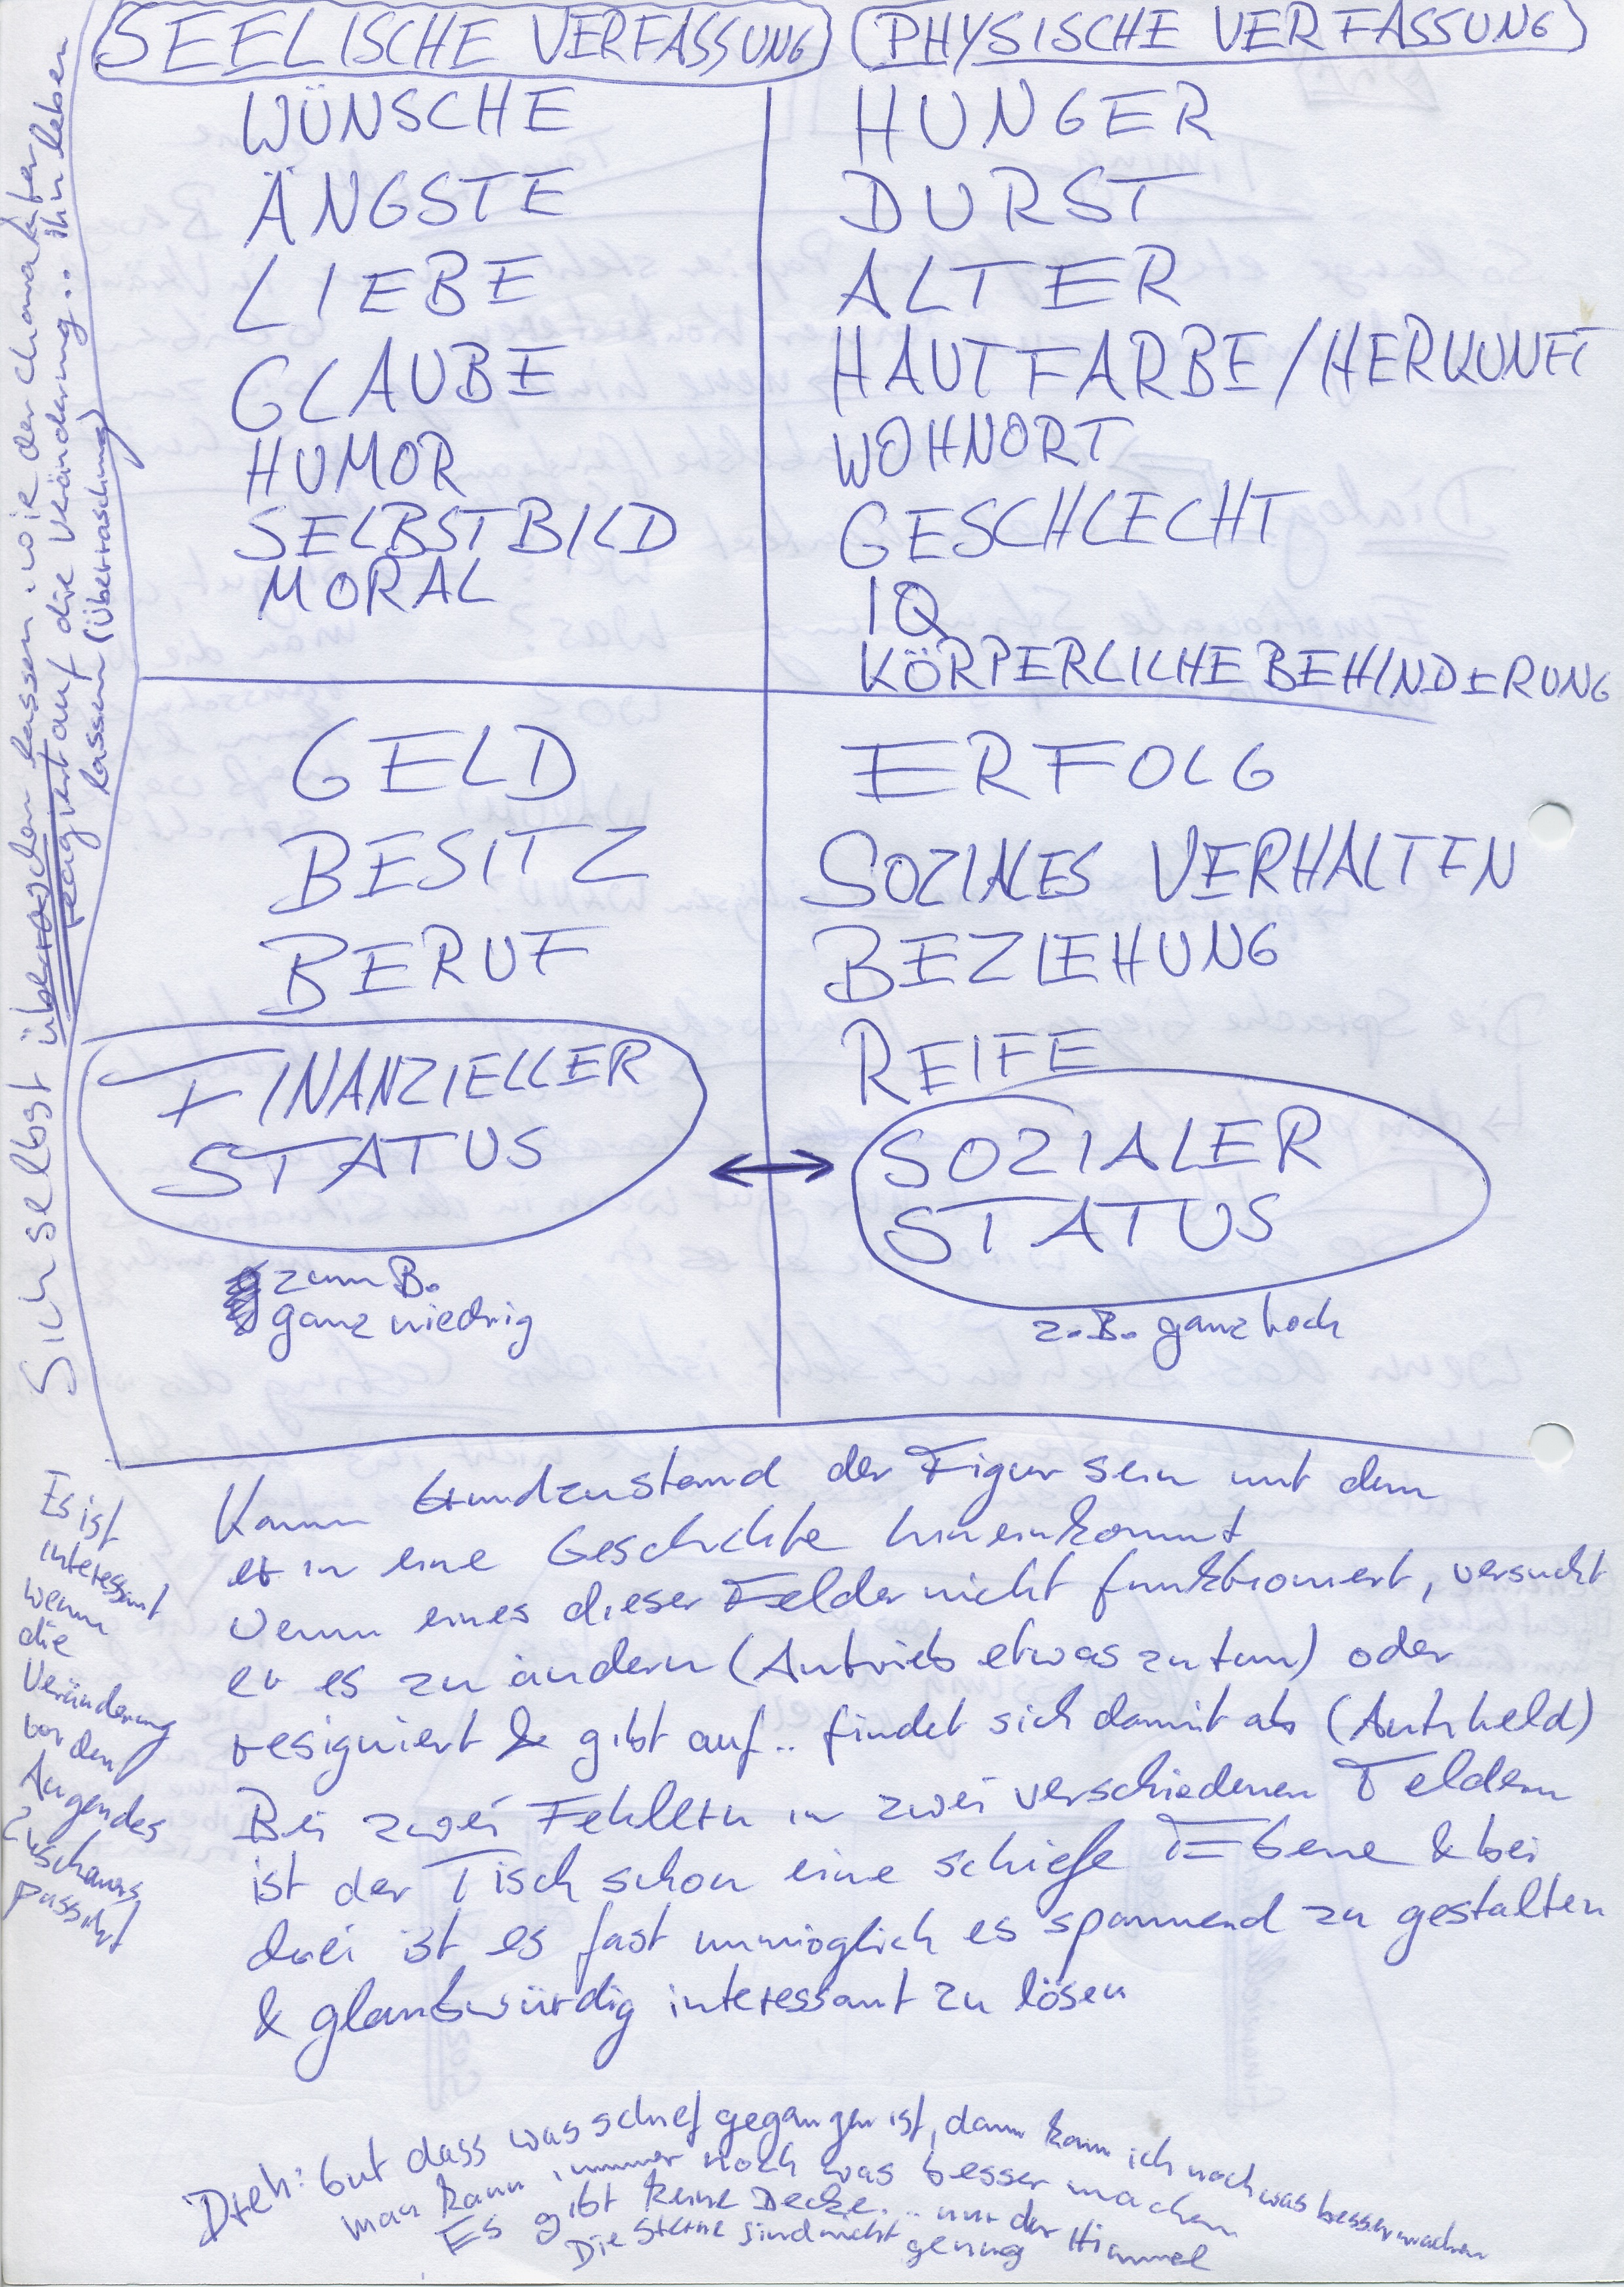 SEELISCHE VERFASSUNG
WÜNSCHE
ÄNGSTE
LIEBE
GLAUBE
HUMOR
SELBSTBILD
MORAL
PHYSISCHE VERFASSUNG
HUNGER
DURST
ALTER
HAUTFARBE/HERKUNFT
WOHNORT
GESCHLECHT
IQ
KÖRPERLICHE BEHINDERUNG
GELD
BESITZ
BERUF
FINANZIELLER
STATUS
zum B.
ganz niedrig
ERFOLG
SOZIALES VERHALTEN
BEZIEHUNG
REIFE
SOZIALER
STATUS
z.B. ganz hoch
Sich selbst überraschen lassen, wie der Charakter
reagiert auf die Veränderung.. ihn leben
lassen (Überraschung)
Kann Grundzustand der Figur sein mit dem
er in eine Geschichte hineinkommt
Wenn eines dieser Felder nicht funktioniert, versucht
er es zu ändern (Antrieb etwas zu tun) oder
resigniert & gibt auf.. findet sich damit ab (Antiheld)
Bei zwei Fehlern in zwei verschiedenen Feldern
ist der Tisch schon eine schiefe Ebene & bei
drei ist es fast unmöglich es spannend zu gestalten
& glaubwürdig interessant zu lösen
Es ist
interessant
wenn
die
Veränderung
vor den
Augen des
Zuschauers
passiert
Dreh: Gut dass was schief gegangen ist, dann kann ich noch was besser machen
man kann immer noch was besser machen
Es gibt keine Decke... nur der Himmel
Die Sterne sind nicht genug